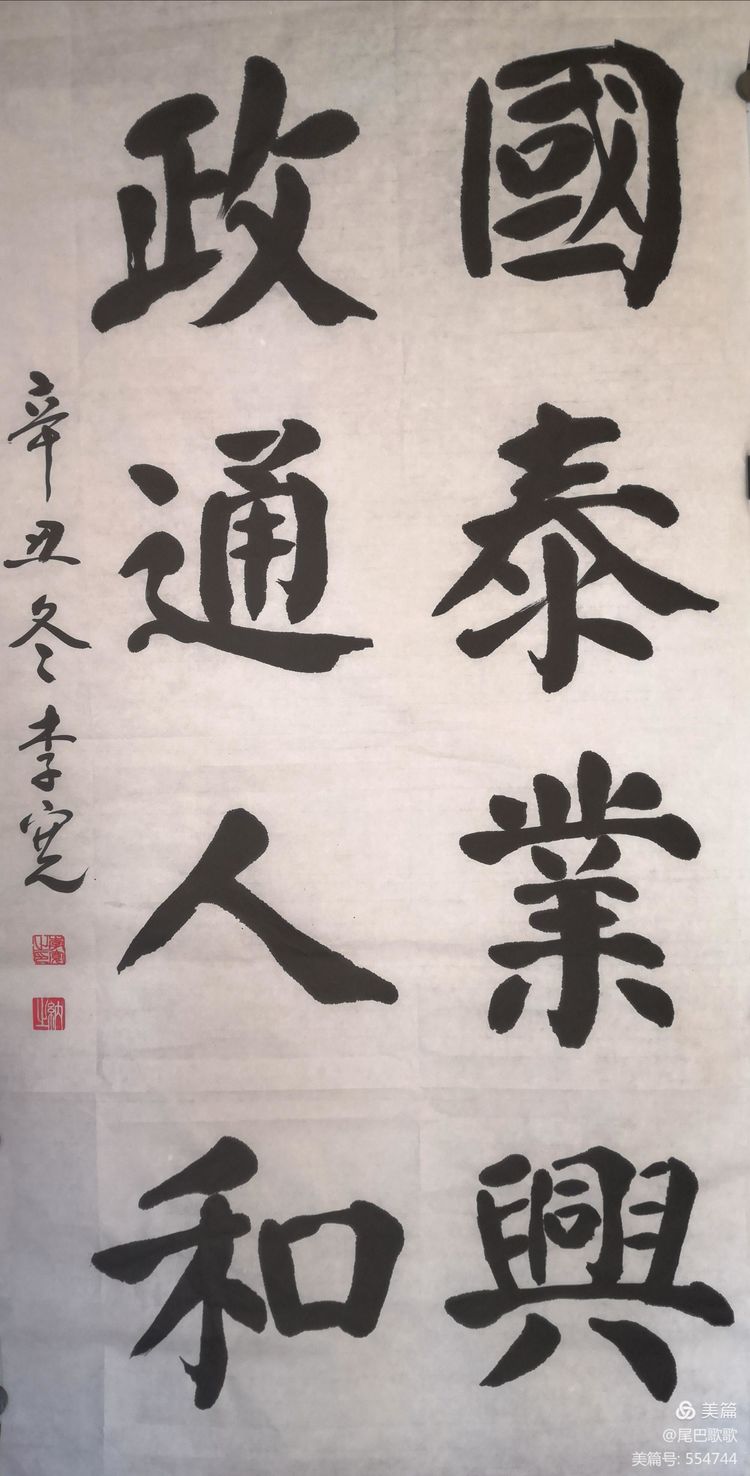 國泰業興
政通人和
辛丑冬李寬
美篇
@尾巴歌歌
美篇号: 554744